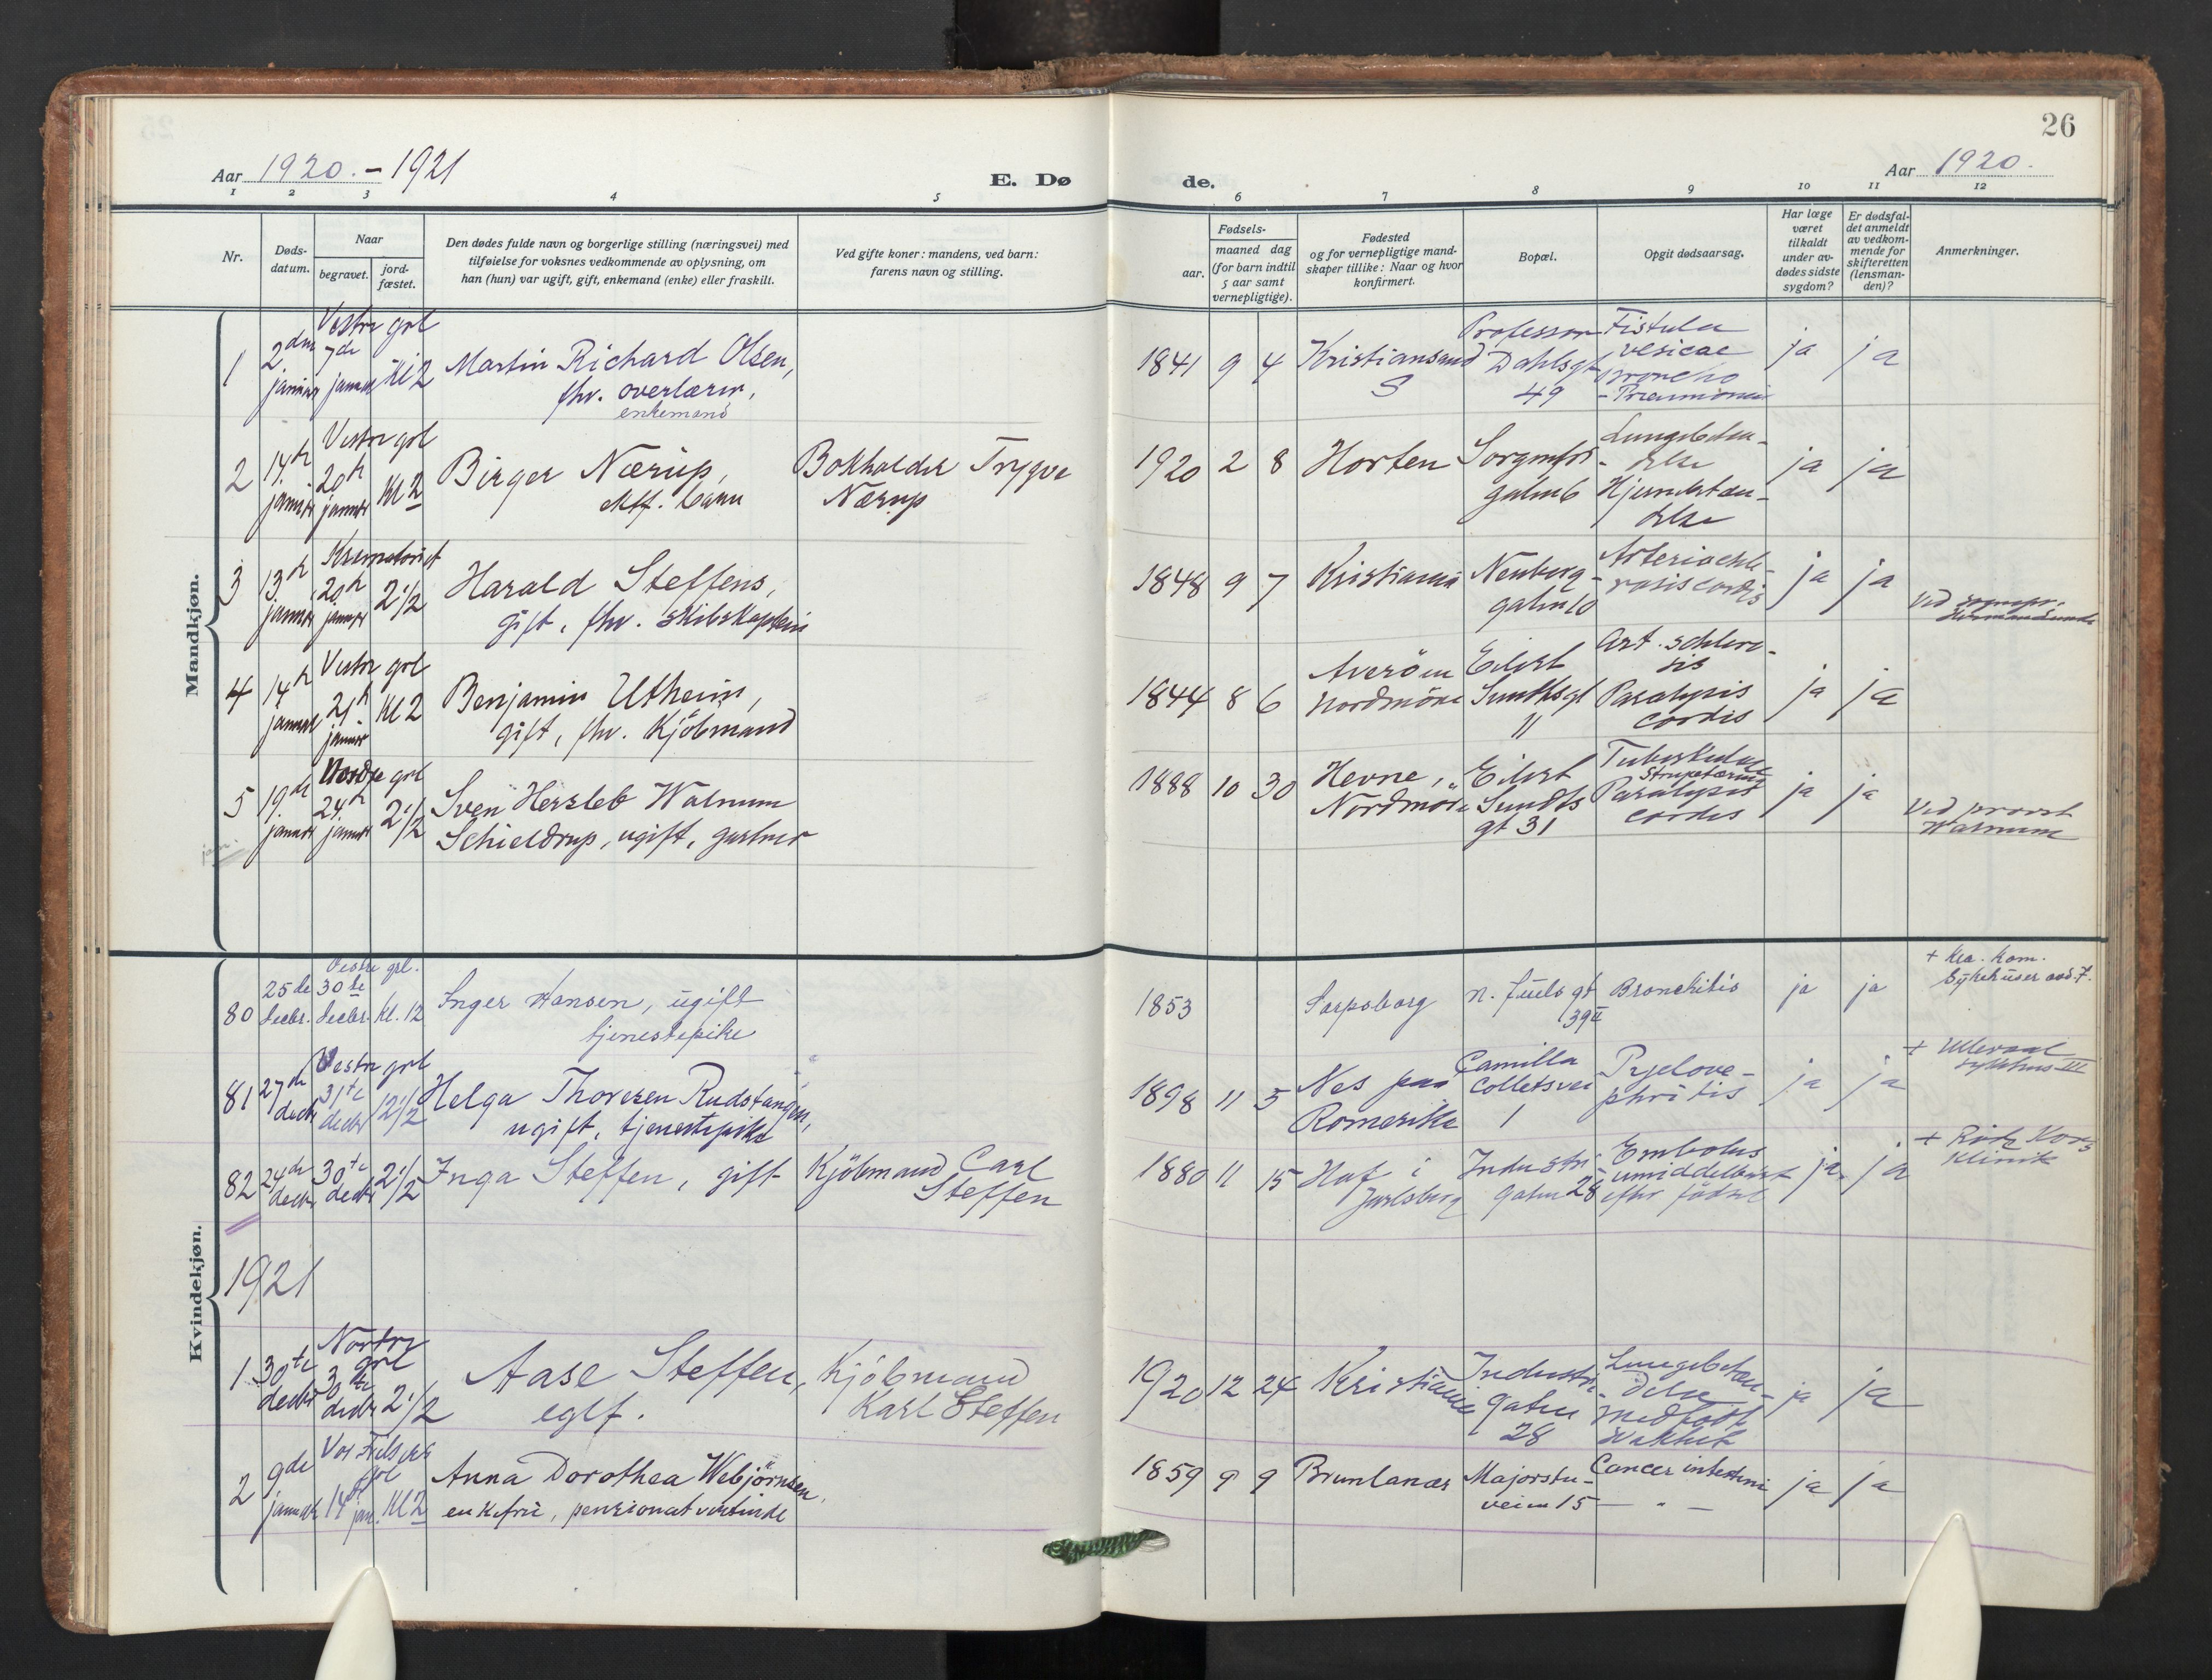 26
Aar 1920. - 1921
E. Dø
de.
Aar 1920.
1 2 3 4 5 6 7 8 9 10 11 12
Nr.
Døds-
datum.
Naar
begravet.
jord-
fæstet.
Den dødes fulde navn og borgerlige stilling (næringsvei) med
tilføielse for voksnes vedkommende av oplysning, om
han (hun) var ugift, gift, enkemand (enke) eller fraskilt.
Ved gifte koner: mandens, ved barn:
farens navn og stilling.
Fødsels-
aar.
maaned dag
(for barn indtil
5 aar samt
vernepligtige).
Fødested
og for vernepligtige mand-
skaper tillike: Naar og hvor
konfirmert.
Bopæl.
Opgit dødsaarsag.
Har læge
været
tilkaldt
under av-
dødes sidste
sygdom?
Er dødsfal-
det anmeldt
av vedkom-
mende for
skifteretten
(lensman-
den)?
Anmerkninger.
Mandkjøn.
Vestre grl
1 2den januar 7de januar Kl 2
Martin Richard Olsen,
fhv. overlærer,
enkemand
1841 9 4
Kristiansand
S
Professor
Dahlsgt
49
Fistula
vesicae
Broncho
-Pneumonia
ja ja
Vestre grl
2 14de januar 20de januar Kl 2
Birger Nærup,
barn
Bokholder Trygve
Nærup
1920 2 8
Horten
Sorgenfri-
gaten 6
Lungebetæn-
delse
Hjernebetæn-
delse
ja ja
Krematoriet
3 13de januar 20de januar 2 1/2
Harald Steffens,
gift, fhv. skibskaptein
1848 9 7
Kristiania
Neuberg-
gaten 10
Arterioschle-
rosis cordis
ja ja
Ved sognepr.
Vestre grl
4 14de januar 21de januar Kl 2
Benjamin Utheim,
gift, fhv. Kjöbmand
1844 8 6
Averöen
Nordmöre
Eilert
Sundtsgt
11
Art. schlero-
sis
Paralysis
cordis
ja ja
Nordre grl
5 19de januar 24de januar 2 1/2
Sven Hersleb Walnum
Schieldrup, ugift, gartner
1888 10 30
Hevne,
Nordmöre
Eilert
Sundts
gt 31
Tuberkulose
Strupetæring
Paralysis
cordis
ja ja
Ved provst
Walnum
Kvindekjøn.
Vestre grl.
80 25de decbr. 30te decbr. Kl. 12
Inger Hansen, ugift
tjenestepike
1853
Sarpsborg
n. Juels gt
39 II
Bronchitis
ja ja
+ Kra. Kom.
Sykehuser avd. 7.
Vestre grl
81 27de decbr 31te decbr 12 1/2
Helga Thoresen Rudstangen,
ugift, tjenestepike
1898 11 5
Nes paa
Romerike
Camilla
Colletsvei
1
Pyelone-
phritis
ja ja
+ Ullevaal
sykehus III
82 24de decbr 30te decbr 2 1/2
Inga Steffen, gift
Kjöbmand Carl
Steffen
1880 11 15
Hof i
Jarlsberg
Industri-
gaten 28
Embolus
umiddelbart
efter födsel
ja ja
+ Röde Kors
Klinik
1921
Nordre
grl
1 30te decbr 30te decbr 2 1/2
Aase Steffen,
egtf.
Kjöbmand
Karl Steffen
1920 12 24
Kristiania
Industri-
gaten
28
Lungebetæn-
delse
medfödt
svakhet
ja ja
Vor Frelsers
grl
2 9de januar 14de jan. Kl 2
Anna Dorothea Webjörnsen,
enkefru, pensionatvertinde
1859 9 9
Brunlanæs
Majorstu-
veien 15
Cancer intestini
— " —
ja ja